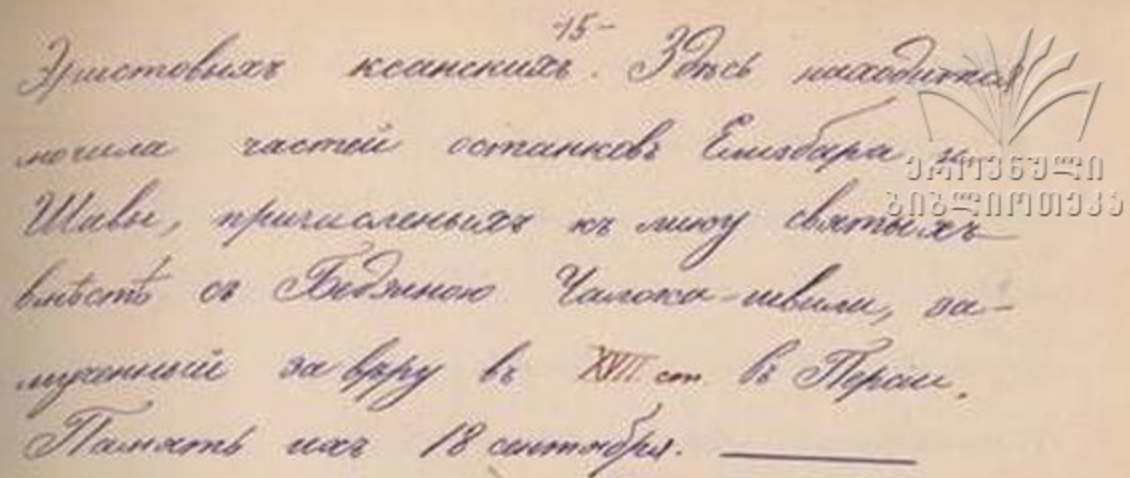 -15-
Эристовыхъ ксанскихъ. Здѣсь находится
могила частей останковъ Елизбара и
Шавы, причисленыхъ къ лику святыхъ
вмѣстѣ съ Бидзиною Чалока-швили, за-
мученный за вѣру въ XVII ст. въ Персии.
Память ихъ 18 сентября.
ეროვნული
ბიბლიოთეკა